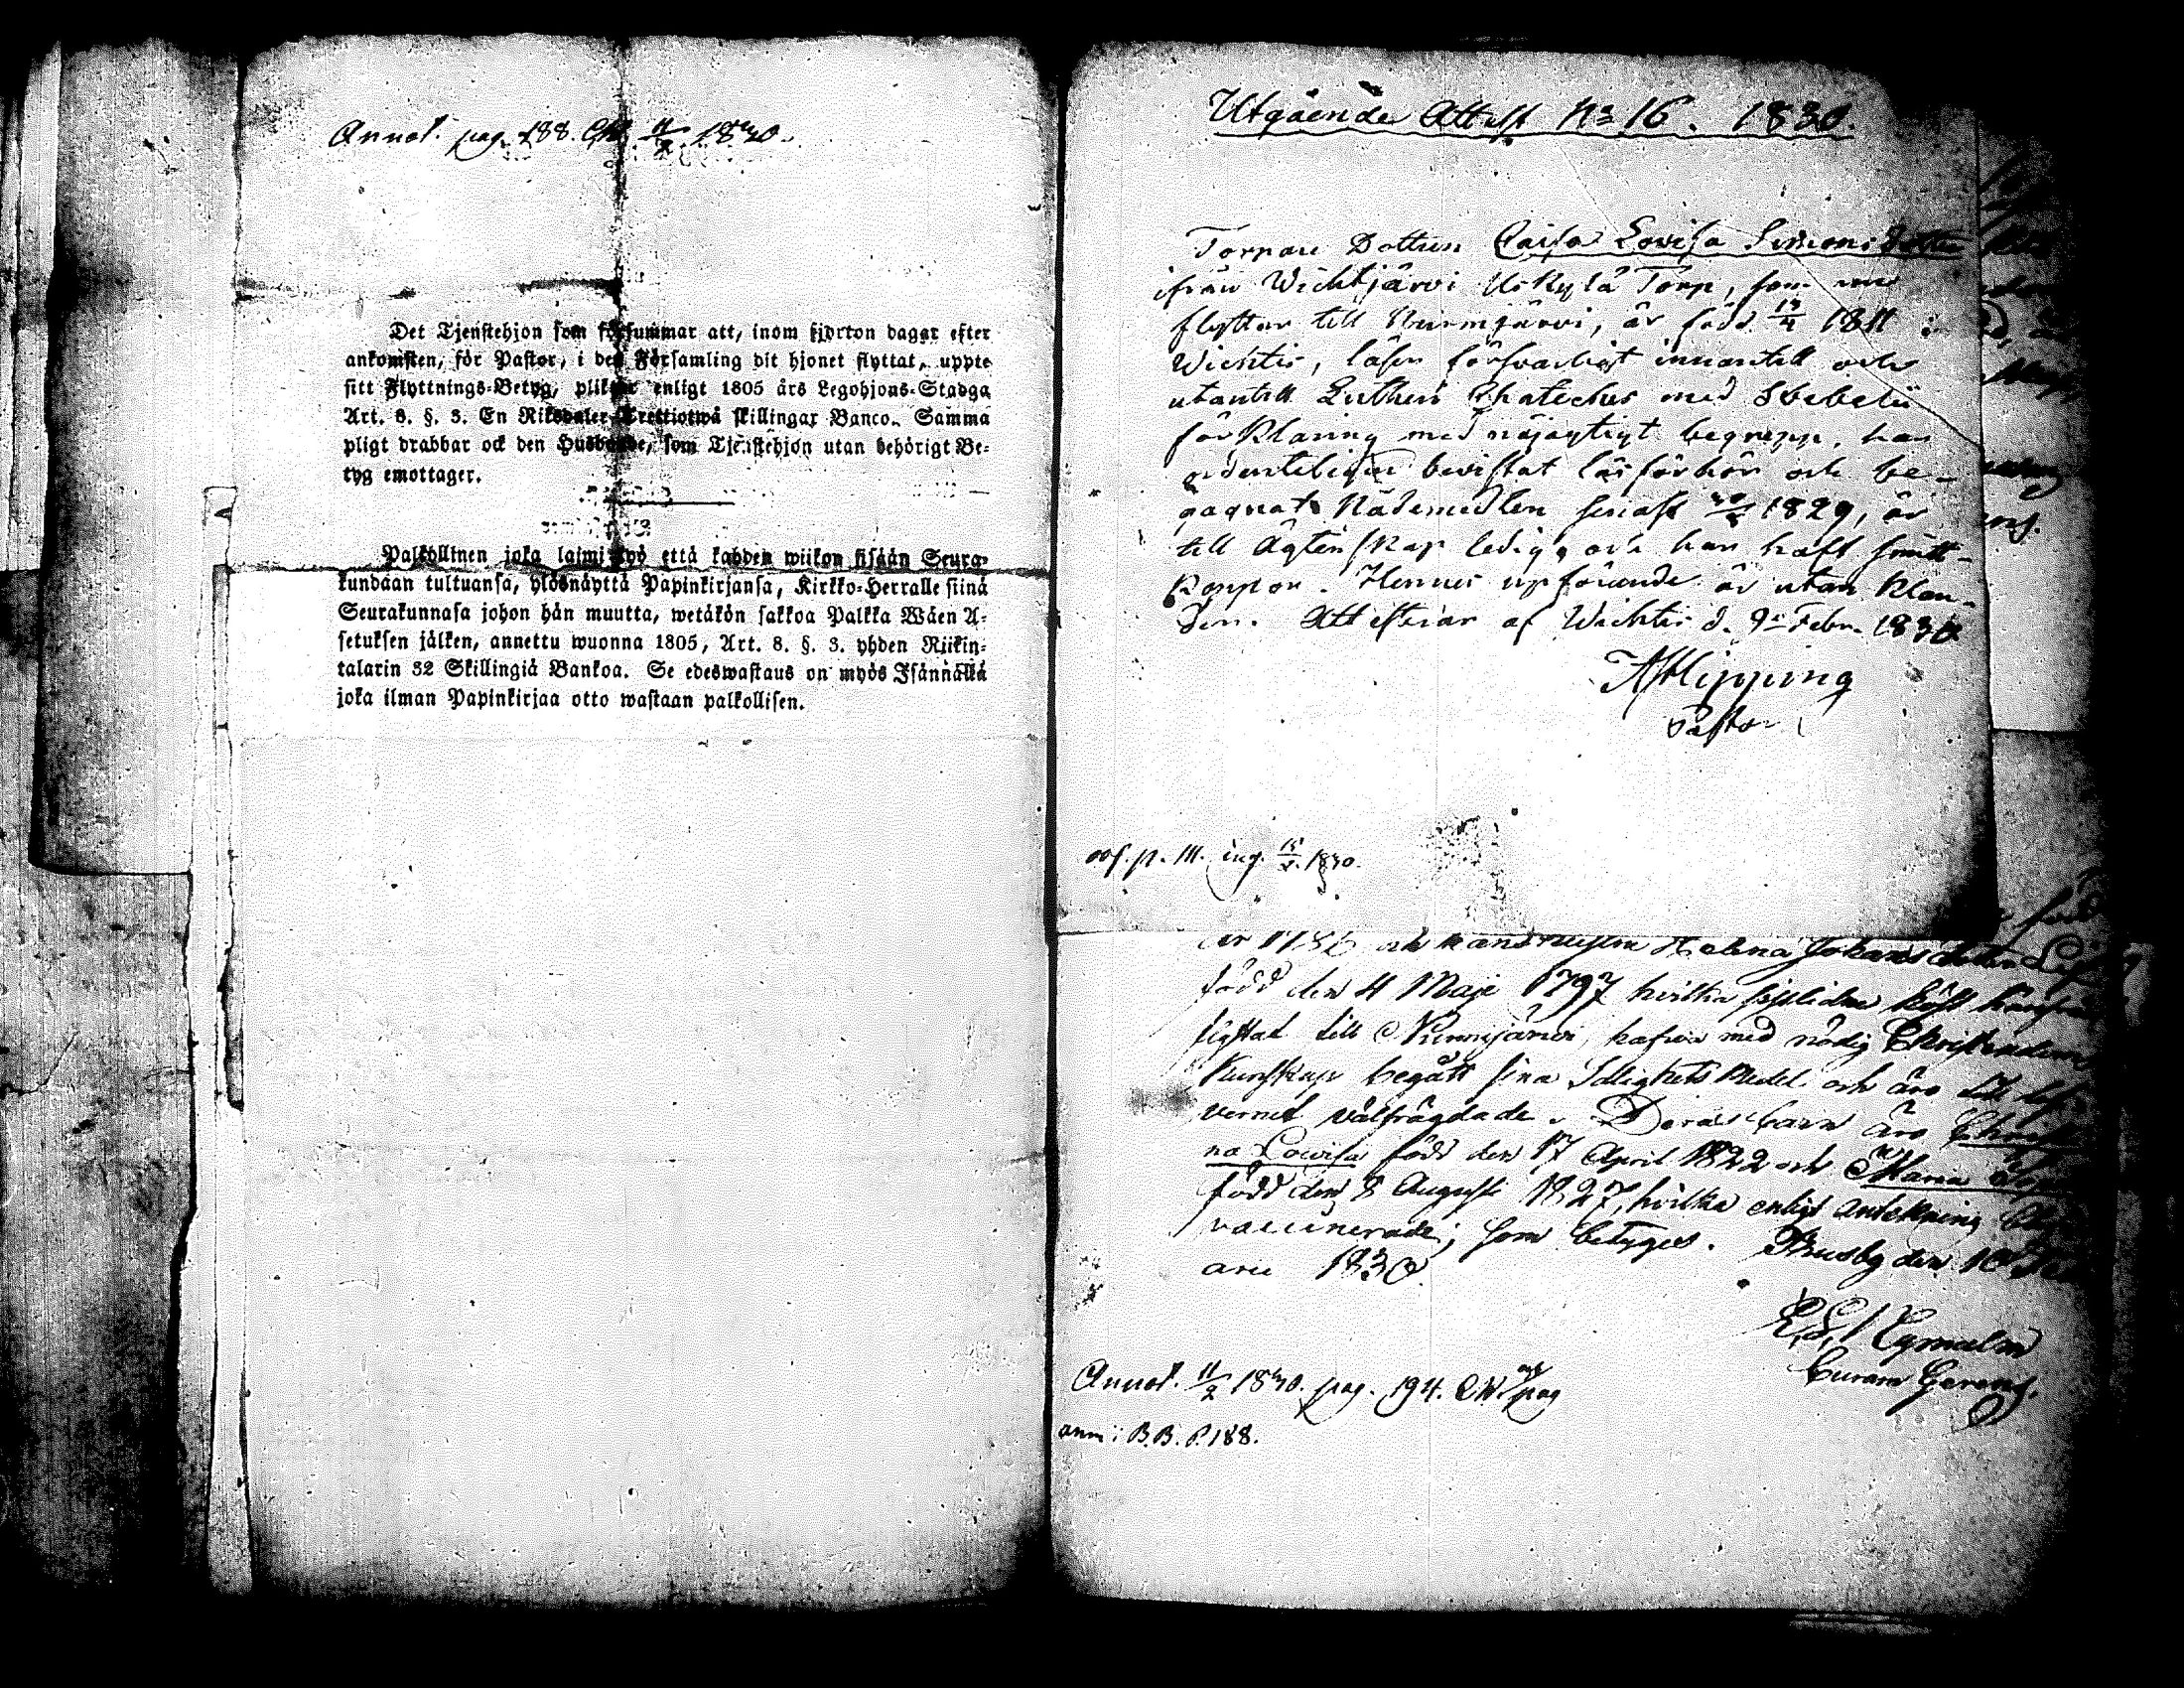 Annot. pag. 188. 11/2 1830.
Det Tjenstehjon som försummar att, inom fjorton dagar efter
ankomsten, för Pastor, i den Församling dit hjonet flyttat, uppte
sitt Flyttnings-Betyg, pliktar enligt 1805 års Legohjons-Stadga
Art. 8. §. 3. En Riksdaler Trettiotwå skillingar Banco. Samma
pligt drabbar ock den Husbonde, som Tjenstehjon utan behörigt Be-
tyg emottager.
Palkollinen joka laimi lyö että kahden wiikon sisään Seura-
kundaan tultuansa, ylösnäyttä Papinkirjansa, Kirkko-Herralle siinä
Seurakunnasa johon hän muutta, wetäkön sakkoa Palkka Wäen A-
setuksen jälken, annettu wuonna 1805, Art. 8. §. 3. yhden Riikin-
talarin 32 Skillingiä Bankoa. Se edeswastaus on myös Isännällä
joka ilman Papinkirjaa otto wastaan palkollisen.
Utgående Attest No 16. 1830.
Torpare Dottren Caisa Lovisa Simonsdotter
ifrån Wichtjärvi Torp, som nu
flyttar till Nurmijärvi, är född 1811 i
Wichtis, läser försvarligt innantill och
utantill Lutheri Chateches med Svebelii
förklaring med nöjagtigt begrepp, har
ordenteligen bevistat läsförhör och be-
gagnat Nådemedlen senast 1829, är
till Ägtenskap ledig, och har haft smitt-
koppor. Hennes upförande är utan klan-
der. Attesterar af Wichtis d. 9 Febr. 1830
AHipping
Pastor
p. 111. ing. 1830.
1786 och hans hustru Helena Johansdotter
född den 4 Maji 1797 hvilka sistlidne höst
flyttat till Nurmijärvi, hafva med nödig Christendoms
Kunskap begått sina Salighets Medel och äro till
vernet välfrägdade. Deras barn äro
na Lovisa född den 17 April 1822 och Maria
född den 8 Augusti 1827, hvilka enligt anteckning
vaccinerade; som betygas. Thusby den 10
arii 1830.
Curam Gerens.
Annot. 11/2 1830. pag. 194.
ann: B.B. P. 188.